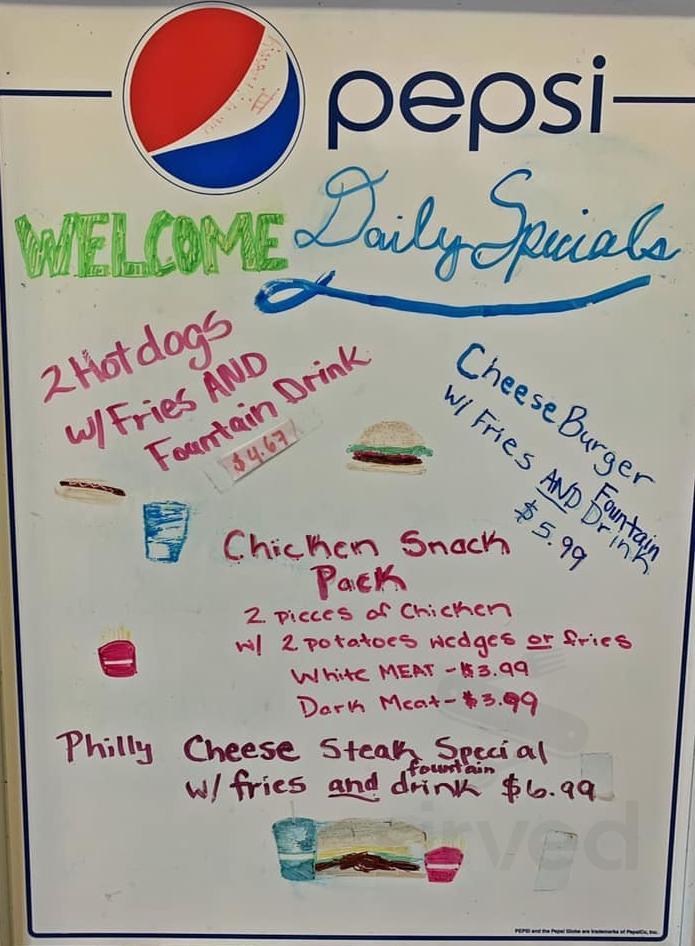 pepsi
WELCOME Daily Specials
2 Hotdogs
w/Fries AND
Fountain Drink
$4.67
CheeseBurger
w/ Fries AND Fountain
Drink
$5.99
Chicken Snack
Pack
2 pieces of Chicken
w/ 2 potatoes wedges or fries
White MEAT - $3.99
Dark Meat - $3.99
Philly Cheese Steak Special
w/ fries and fountain drink $6.99
irved
PEPSI and the Pepsi Globe are trademarks of PepsiCo, Inc.